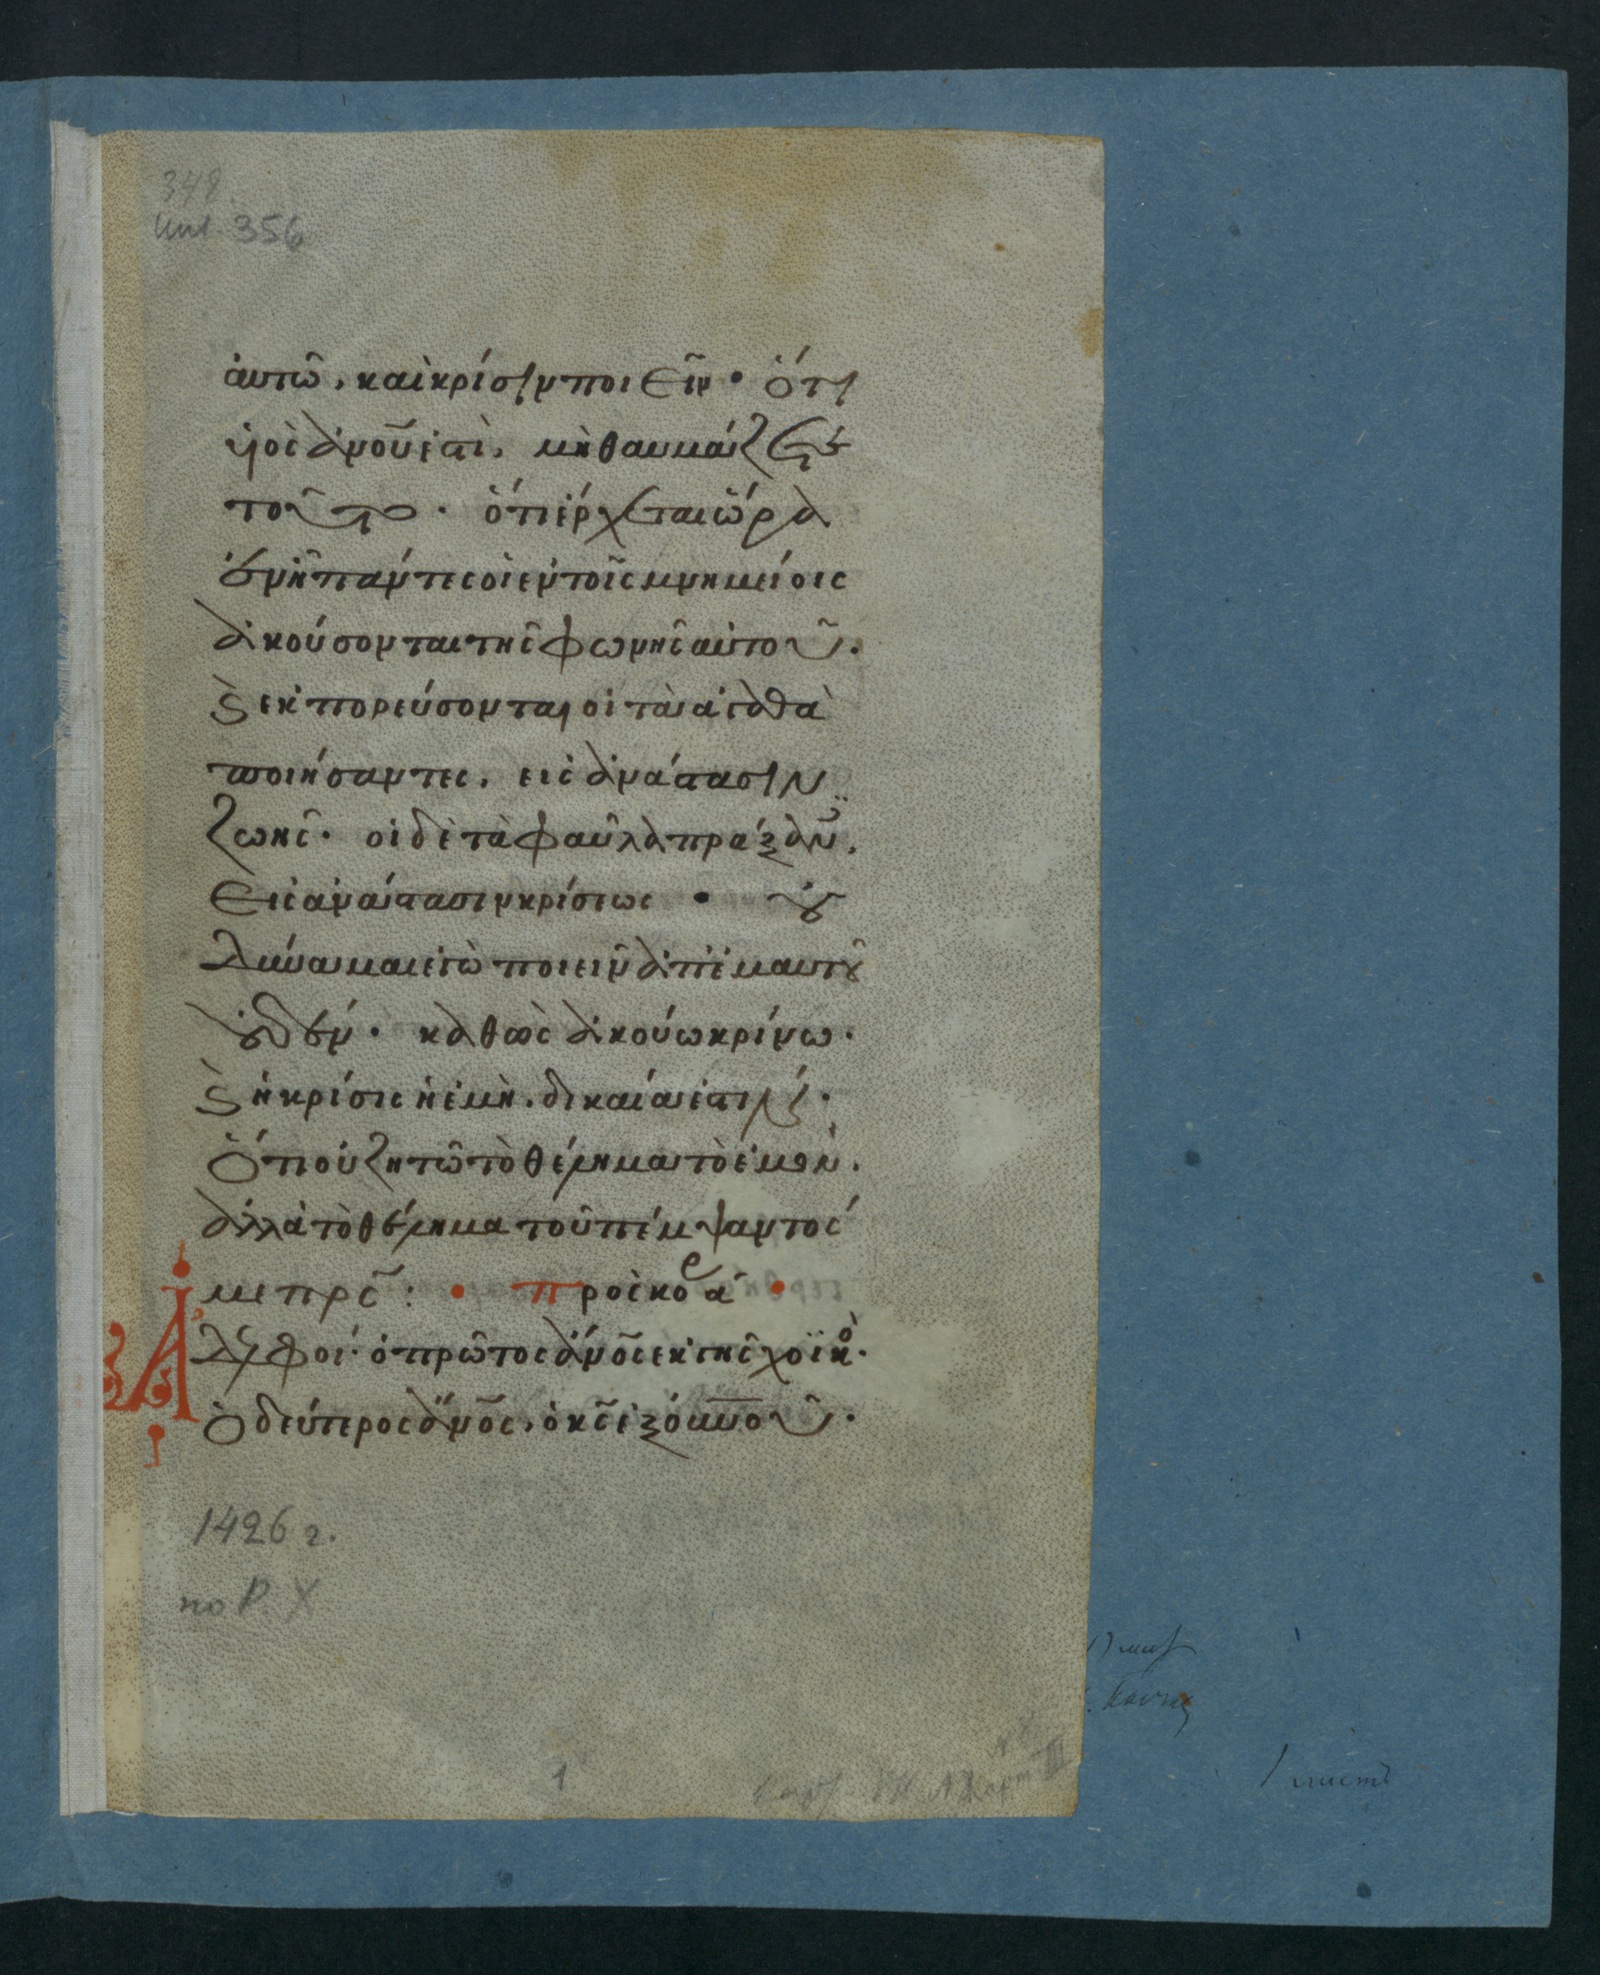 349.
356
αὐτῶ, καὶ κρίσιν ποιεῖν · ὅτι
υἱὸς ἀνοῦ ἐστὶ, μὴ θαυμάζετε
τοῦτο · ὅτι ἔρχεται ὥρα
ἐν ἧ πάντες οἱ ἐν τοῖς μνημείοις
ἀκούσονται τῆς φωνῆς αὐτοῦ.
ϗ ἐκπορεύσονται οἱ τὰ ἀγαθὰ
ποιήσαντες, εἰς ἀνάστασιν
ζωῆς · οἱ δὲ τὰ φαῦλα πράξαν,
εἰς ἀνάστασιν κρίσεως · οὐ
δύναμαι ἐγὼ ποιεῖν ἀπ' ἐμαυτοῦ
οὐδέν · καθὼς ἀκούω κρίνω ·
ϗ ἡ κρίσις ἡ ἐμὴ, δικαία ἐστὶν ·
ὅτι οὐ ζητῶ τὸ θέλημα τὸ ἐμὸν,
ἀλλὰ τὸ θέλημα τοῦ πέμψαντός
με πρς : · προς κορ α ·
Ἀδελφοί · ὁ πρῶτος ἄνος ἐκ γῆς χοϊκο ·
ὁ δεύτερος ἄνος, ὁ κς ἐξ οὐνοῦ ·
1426 г.
по Р. Х
1
1 листъ